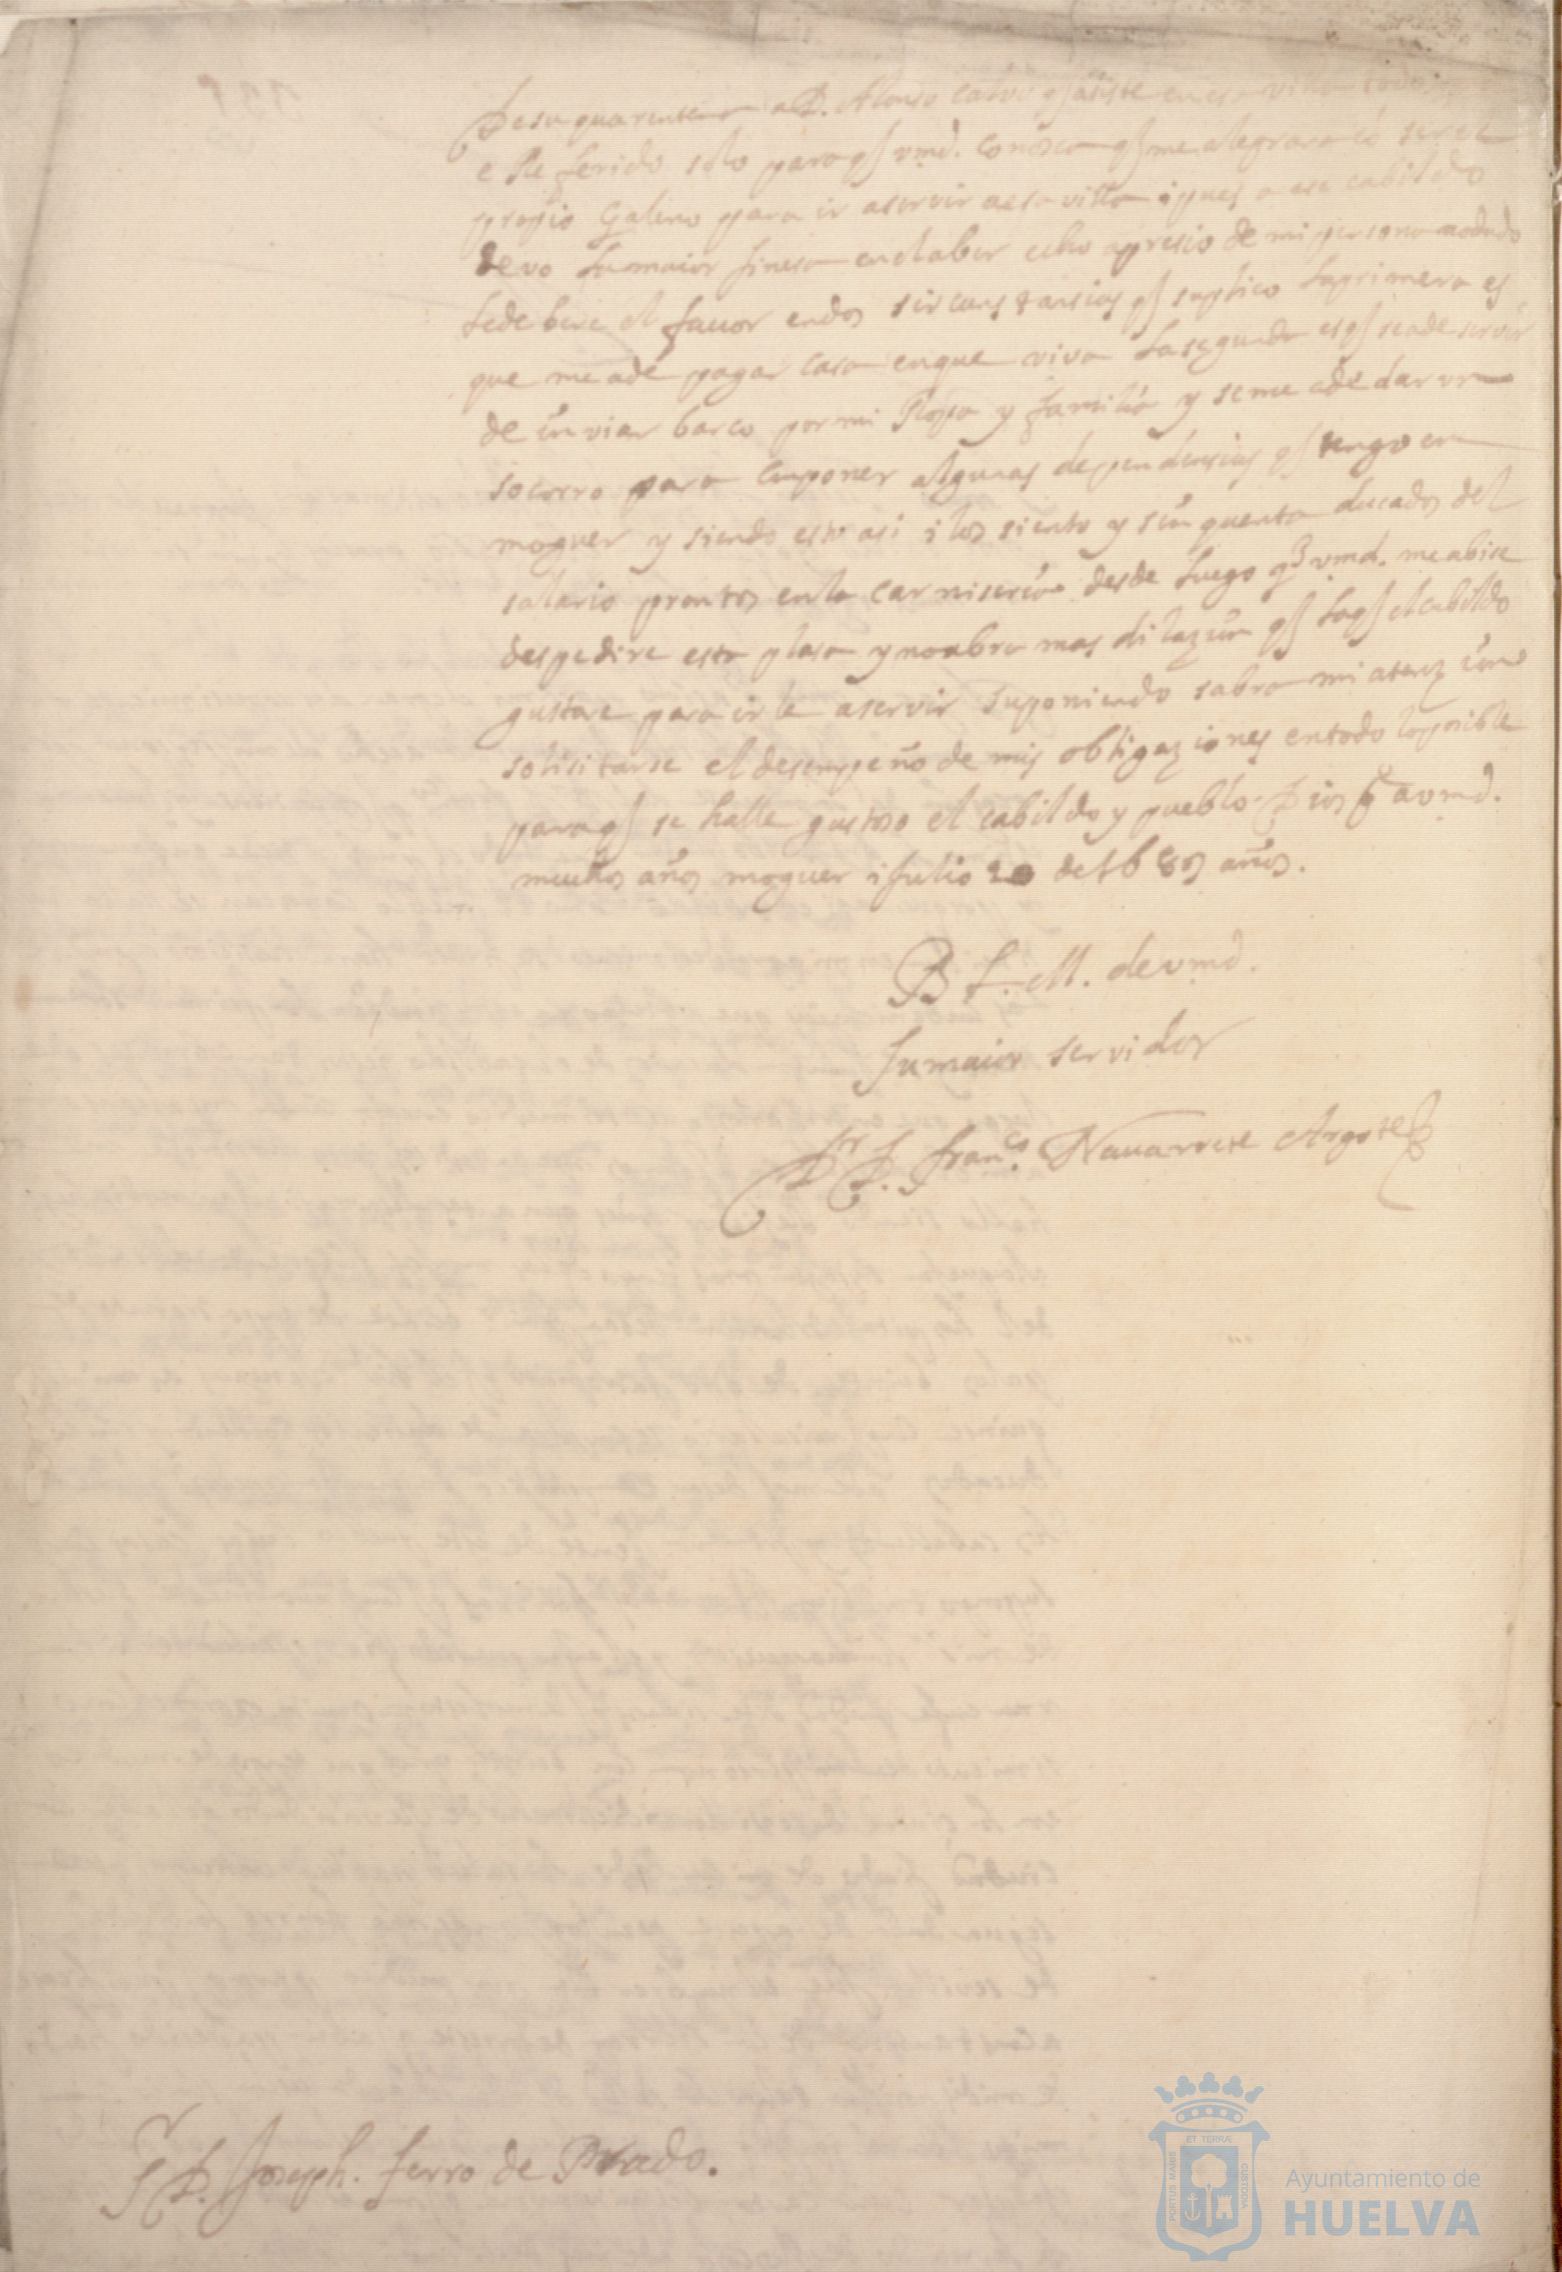 De su quarentena a D. Alonso Calvo q asiste en esa villa todo
e Referido solo para q vmd. conosca q me alegrara ser el
propio Galeno para ir a servir a esa villa i pues a ese cabildo
devo la maior finesa en el aber echo apresio de mi persona
le debere el fauor en dos sircunstansias q suplico la primera es
que me a de pagar casa en que viva la segunda es q se a de servir
de inviar barco por mi Ropa y familia y se me a de dar un
socorro para componer algunas dependensias q tengo en
moguer y siendo esto asi i los siento y sinquenta ducados del
salario prontos en la carniseria desde luego q vmd. me abise
despedire esta plasa y no abra mas dilazion q la q el cabildo
gustare para irle a servir suponiendo sabra mi atenzion
solisitarse el desempeño de mis obligaziones en todo lo posible
para q se halle gustoso el cabildo y pueblo. Dios g a vmd.
muchos años moguer i julio 20 de 1680 años.
B L. M. de vmd.
Su maior servidor
Dr D. Franco. Nauarrete Argote
Sr D. Joseph. ferro de Prado.
PORTUS MARIS
ET TERRÆ
CUSTODIA
Ayuntamiento de
HUELVA